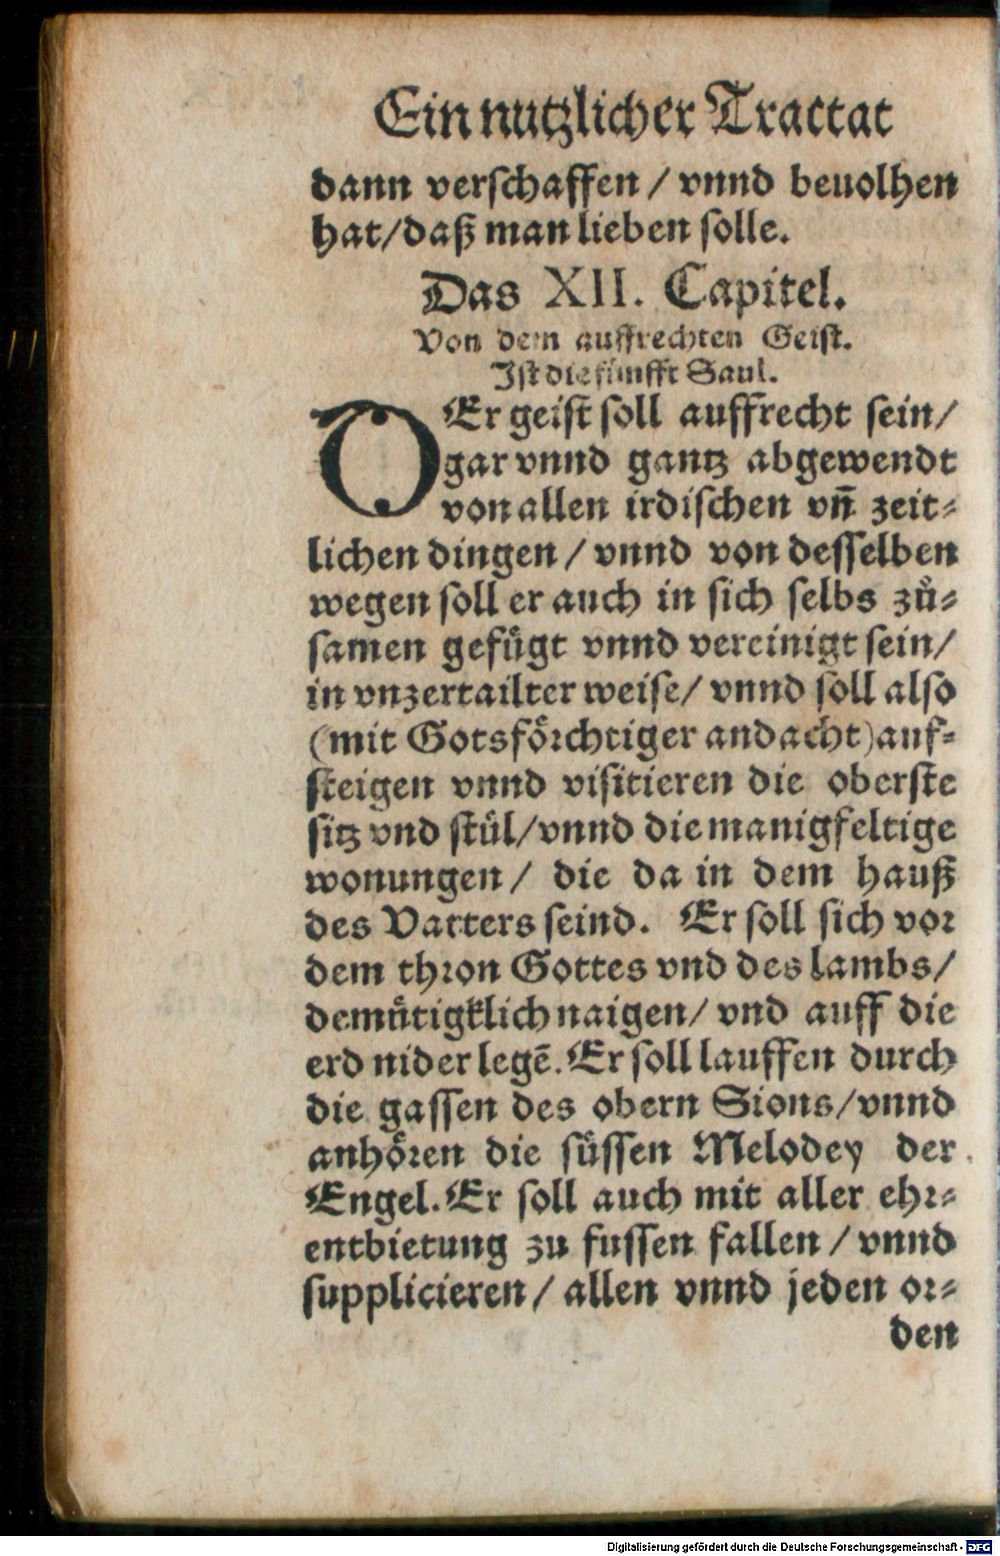 Ein nutzlicher Tractat
dann verschaffen / vnnd beuolhen
hat/daß man lieben solle.
Das XII. Capitel.
Von dem auffrechten Geist.
Ist die fünfft Saul.
DEr geist soll auffrecht sein/
gar vnnd gantz abgewendt
von allen irdischen vñ zeit⸗
lichen dingen / vnnd von desselben
wegen soll er auch in sich selbs zů⸗
samen gefügt vnnd vereinigt sein/
in vnzertailter weise/ vnnd soll also
(mit Gotsförchtiger andacht)auf⸗
steigen vnnd visitieren die oberste
sitz vnd stül/vnnd die manigfeltige
wonungen / die da in dem hauß
des Vatters seind. Er soll sich vor
dem thron Gottes vnd des lambs/
demůtigklich naigen/ vnd auff die
erd nider legē. Er soll lauffen durch
die gassen des obern Sions/vnnd
anhören die süssen Melodey der
Engel. Er soll auch mit aller ehr⸗
entbietung zu fussen fallen / vnnd
supplicieren / allen vnnd jeden or⸗
den
Digitalisierung gefördert durch die Deutsche Forschungsgemeinschaft - DFG